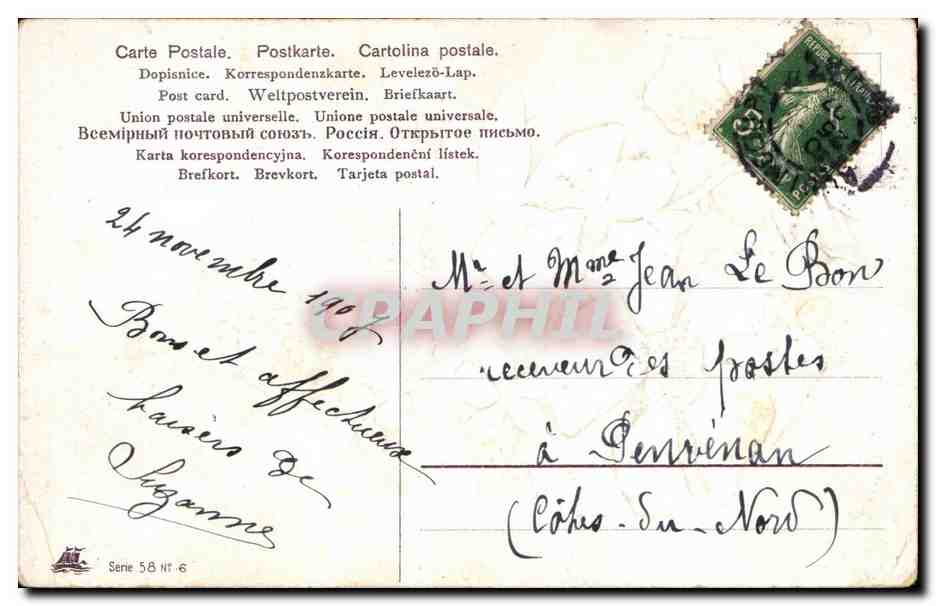 Carte Postale. Postkarte. Cartolina postale.
Dopisnice. Korrespondenzkarte. Levelező-Lap.
Post card. Weltpostverein. Briefkaart.
Union postale universelle. Unione postale universale.
Всемірный почтовый союзъ. Россія. Открытое письмо.
Karta korespondencyjna. Korespondenční lístek.
Brefkort. Brevkort. Tarjeta postal.
24 novembre 1907
Bons et affectueux
baisers de
Suzanne
Mr et Mme Jean Le Bon
receveur des postes
à Penvénan
(Côtes-du-Nord)
CPAPHIL
Serie 58 Nº 6